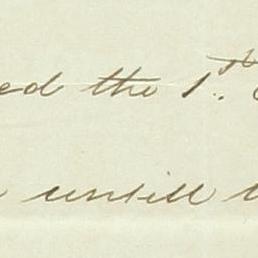 ed the 1st.
untill